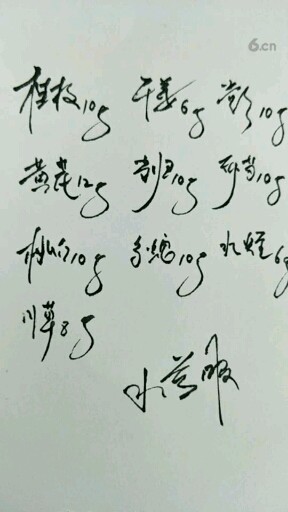 6.cn
桂枝10g 干姜6g 当归10g
黄芪12g 10g 10g
桃仁10g 乌蛇10g 水蛭6g
川草8g
水煎服